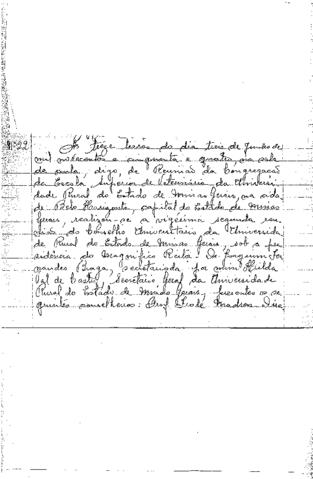 Nº 22
Às treze horas do dia treis de Junho de
mil novecentos e cinquenta e quatro, na sala
de aula, digo, de Reunião da Congregação
da Escola Superior de Veterinária da Universi
dade Rural do Estado de Minas Gerais, na cida
de de Belo Horizonte, capital do Estado de Minas
Gerais, realizou-se a vigésima segunda reu
nião do Conselho Universitário da Universida
de Rural do Estado de Minas Gerais, sob a pre
sidência do Magnífico Reitor Dr.
nandes Braga, secretariada por mim Hilda
de Castro, Secretário Geral da Universidade
Rural do Estado de Minas Gerais, presentes os se
guintes conselheiros: Prof. José Madros